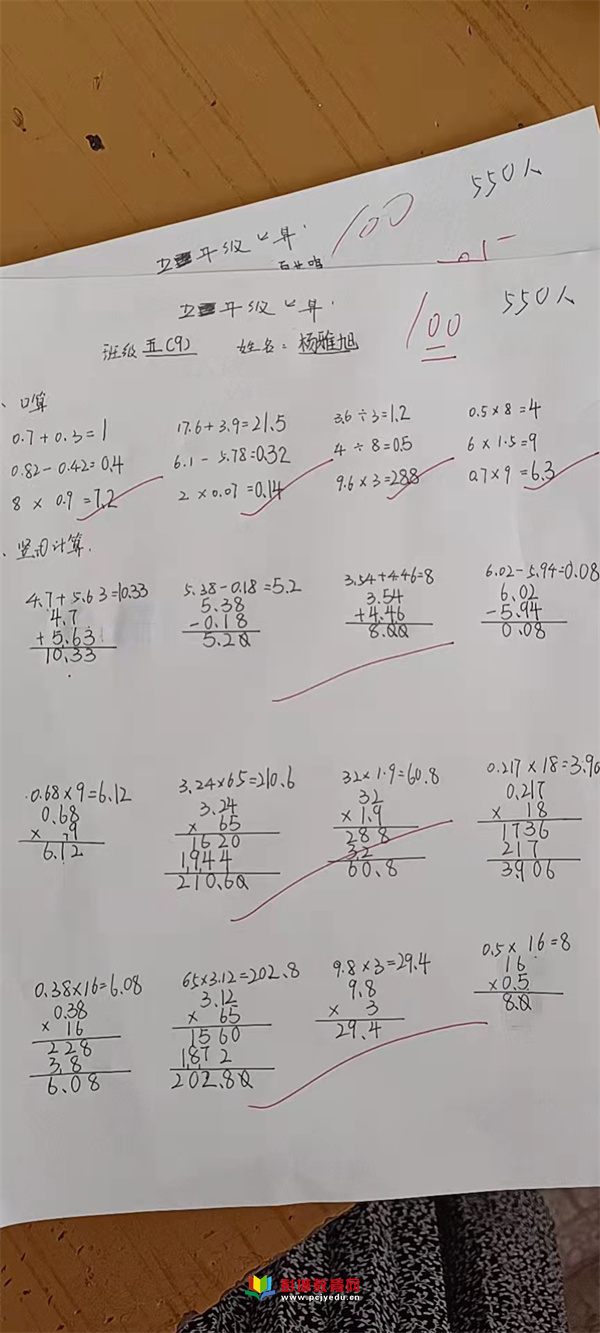 550人
100
五年级口算
100
550人
五年级口算
班级 五(9) 姓名:杨雅旭
、口算
0.7+0.3=1 17.6+3.9=21.5 3.6÷3=1.2 0.5×8=4
0.82-0.42=0.4 6.1-5.78=0.32 4÷8=0.5 6×1.5=9
8×0.9=7.2 2×0.07=0.14 9.6×3=28.8 0.7×9=6.3
、竖式计算.
4.7+5.63=10.33 5.38-0.18=5.2 3.54+4.46=8 6.02-5.94=0.08
4.7 5.38 3.54 6.02
+5.63 -0.18 +4.46 -5.94
10.33 5.20 8.00 0.08
0.68×9=6.12 3.24×65=210.6 32×1.9=60.8 0.217×18=3.90
0.68 3.24 32 0.217
× 9 × 65 ×1.9 × 18
6.12 1620 288 1736
1944 32 217
210.60 60.8 3.906
0.38×16=6.08 65×3.12=202.8 9.8×3=29.4 0.5×16=8
0.38 3.12 9.8 16
× 16 × 65 × 3 ×0.5
228 1560 29.4 8.0
3.8 1872
6.08 202.80
www.pcjyedu.cn